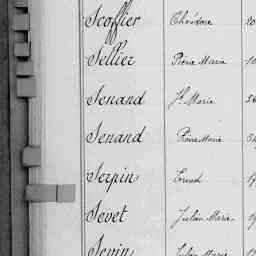 Scoffier Théodore 20
Sellier Pierre Marie 10
Senand Jh Marie
Senand Pierre Marie
Serpin Ernest
Sevet Julien Marie
Sevin Julien Marie